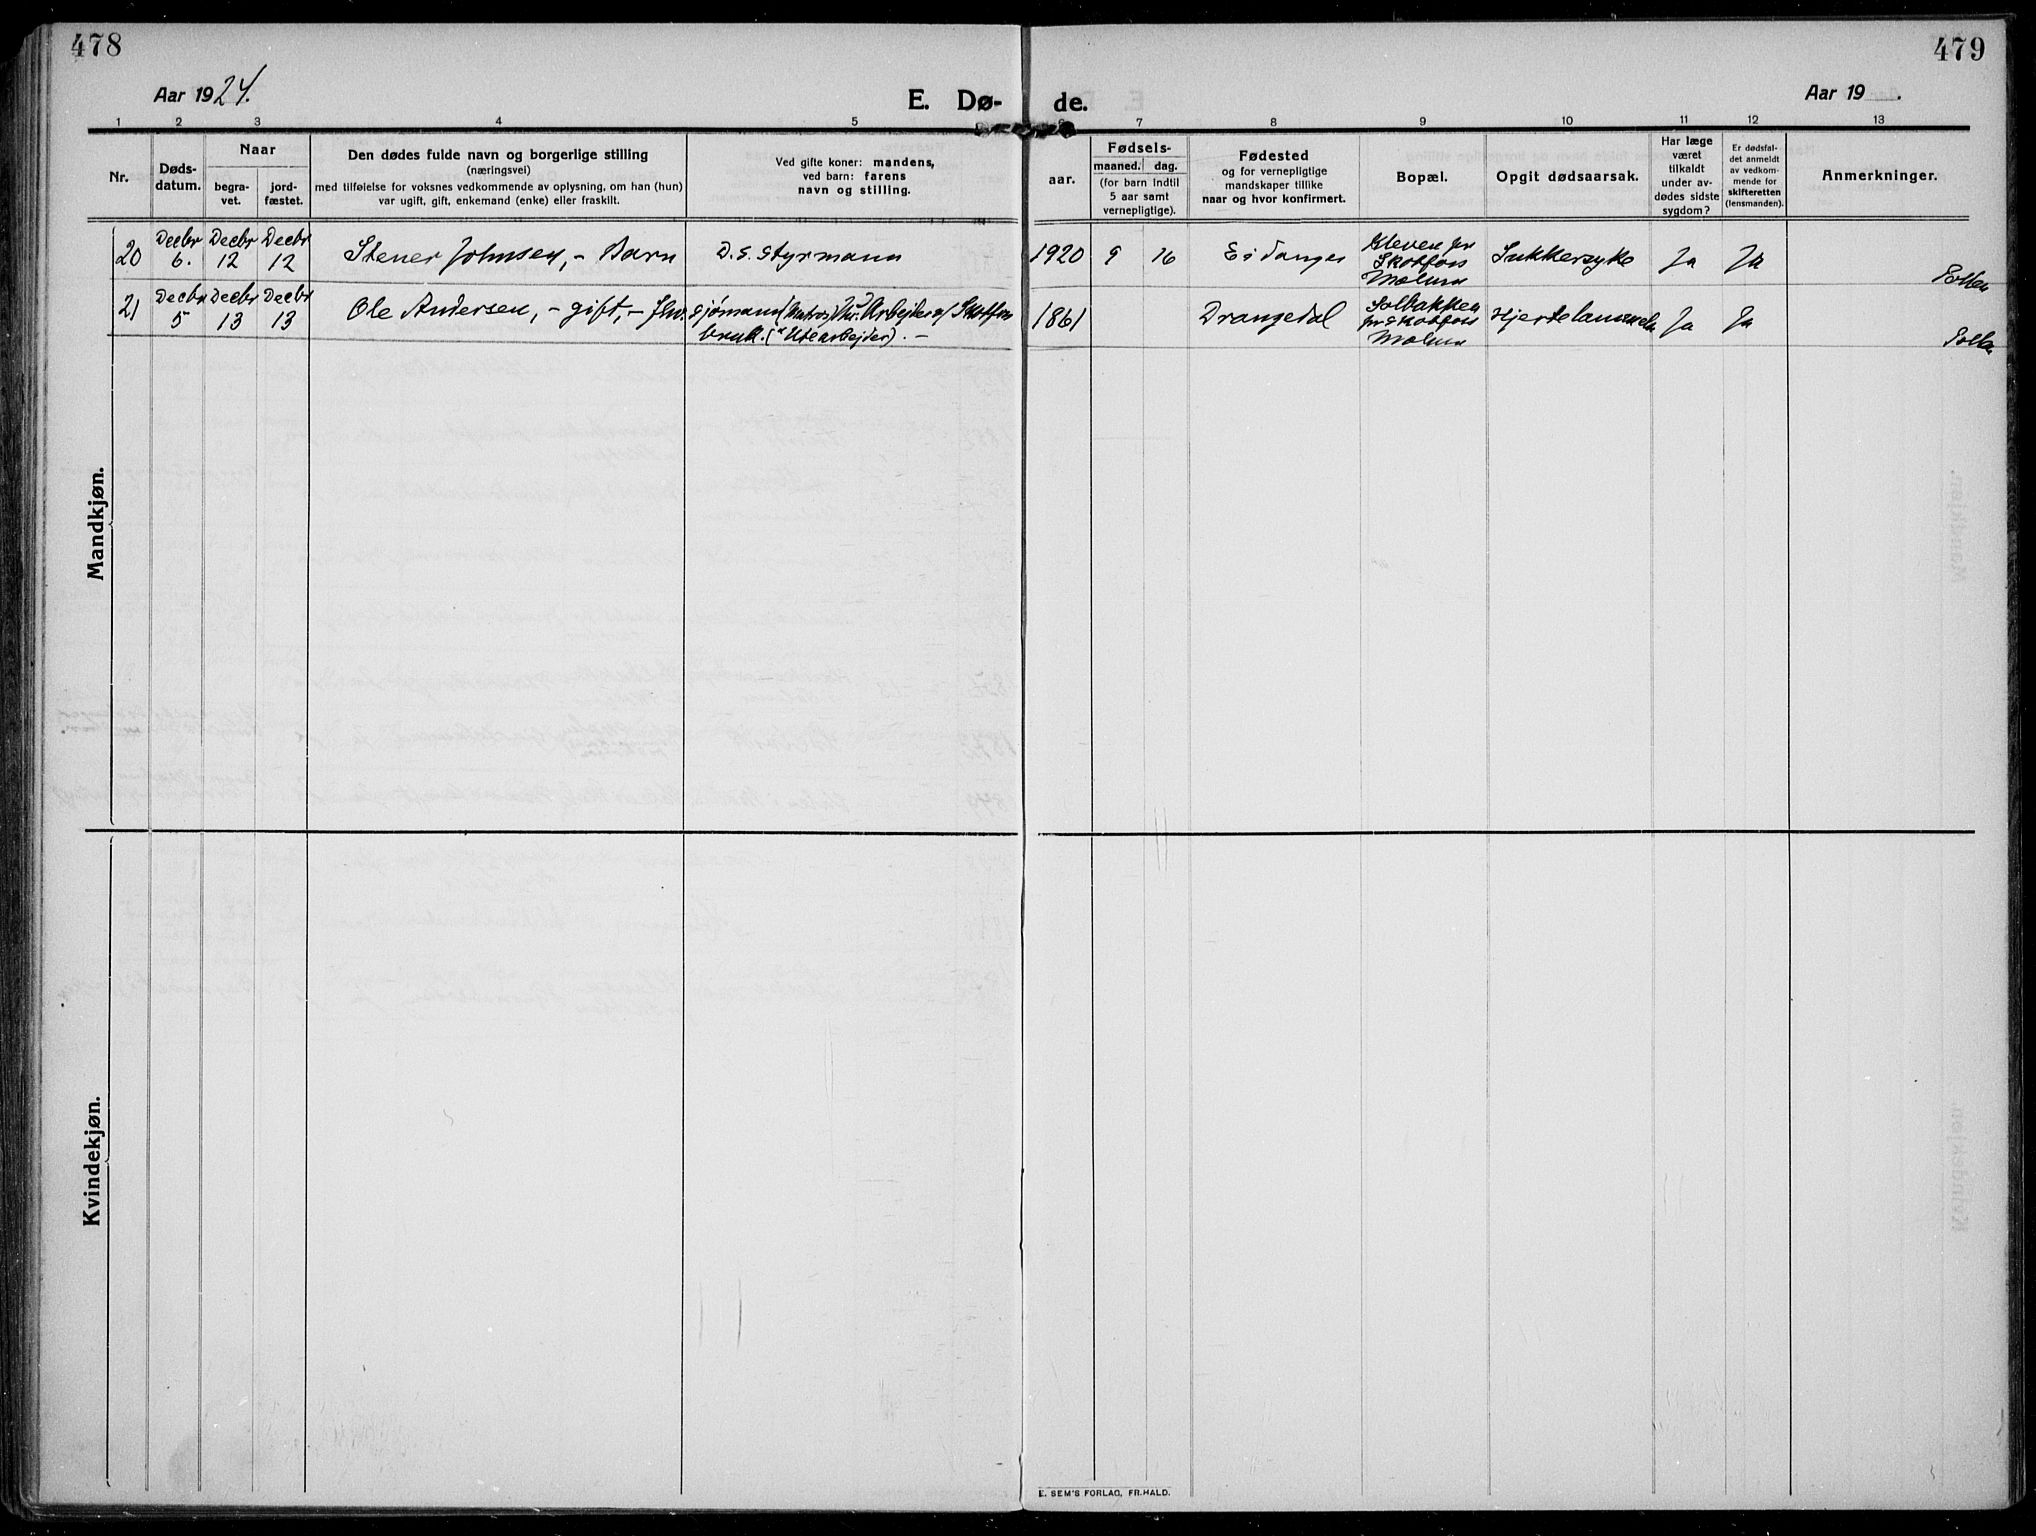 478
479
Aar 1924.
E. Dø-
de.
Aar 19 .
1 2 3 4 5 6 7 8 9 10 11 12 13
Nr.
Døds-
datum.
Naar
begra-
vet.
jord-
fæstet.
Den dødes fulde navn og borgerlige stilling
(næringsvei)
med tilføielse for voksnes vedkommende av oplysning, om han (hun)
var ugift, gift, enkemand (enke) eller fraskilt.
Ved gifte koner: mandens,
ved barn: farens
navn og stilling.
Fødsels-
aar.
maaned. dag.
(for barn indtil
5 aar samt
vernepligtige).
Fødested
og for vernepligtige
mandskaper tillike
naar og hvor konfirmert.
Bopæl.
Opgit dødsaarsak.
Har læge
været
tilkaldt
under av-
dødes sidste
sygdom?
Er dødsfal-
det anmeldt
av vedkom-
mende for
skifteretten
(lensmanden).
Anmerkninger.
Mandkjøn.
20
Decbr
6.
Decbr
12
Decbr
12
Stener Johnsen, - Barn
D. S. Styrmann
1920 9 16
Eidanger
Kleven pr
Skotfoss
Melum
Sukkersyke
Ja
Ja
21
Decbr
5
Decbr
13
Decbr
13
Ole Andersen, - gift, -
sjømann (Matros) Arbejder v/ Skotfoss
bruk. ("Utearbejder). -
1861
Drangedal
Solbakken
pr Skotfoss
Melum
Hjertelammelse
Ja
Ja
Kvindekjøn.
E. SEM'S FORLAG, FR.HALD.